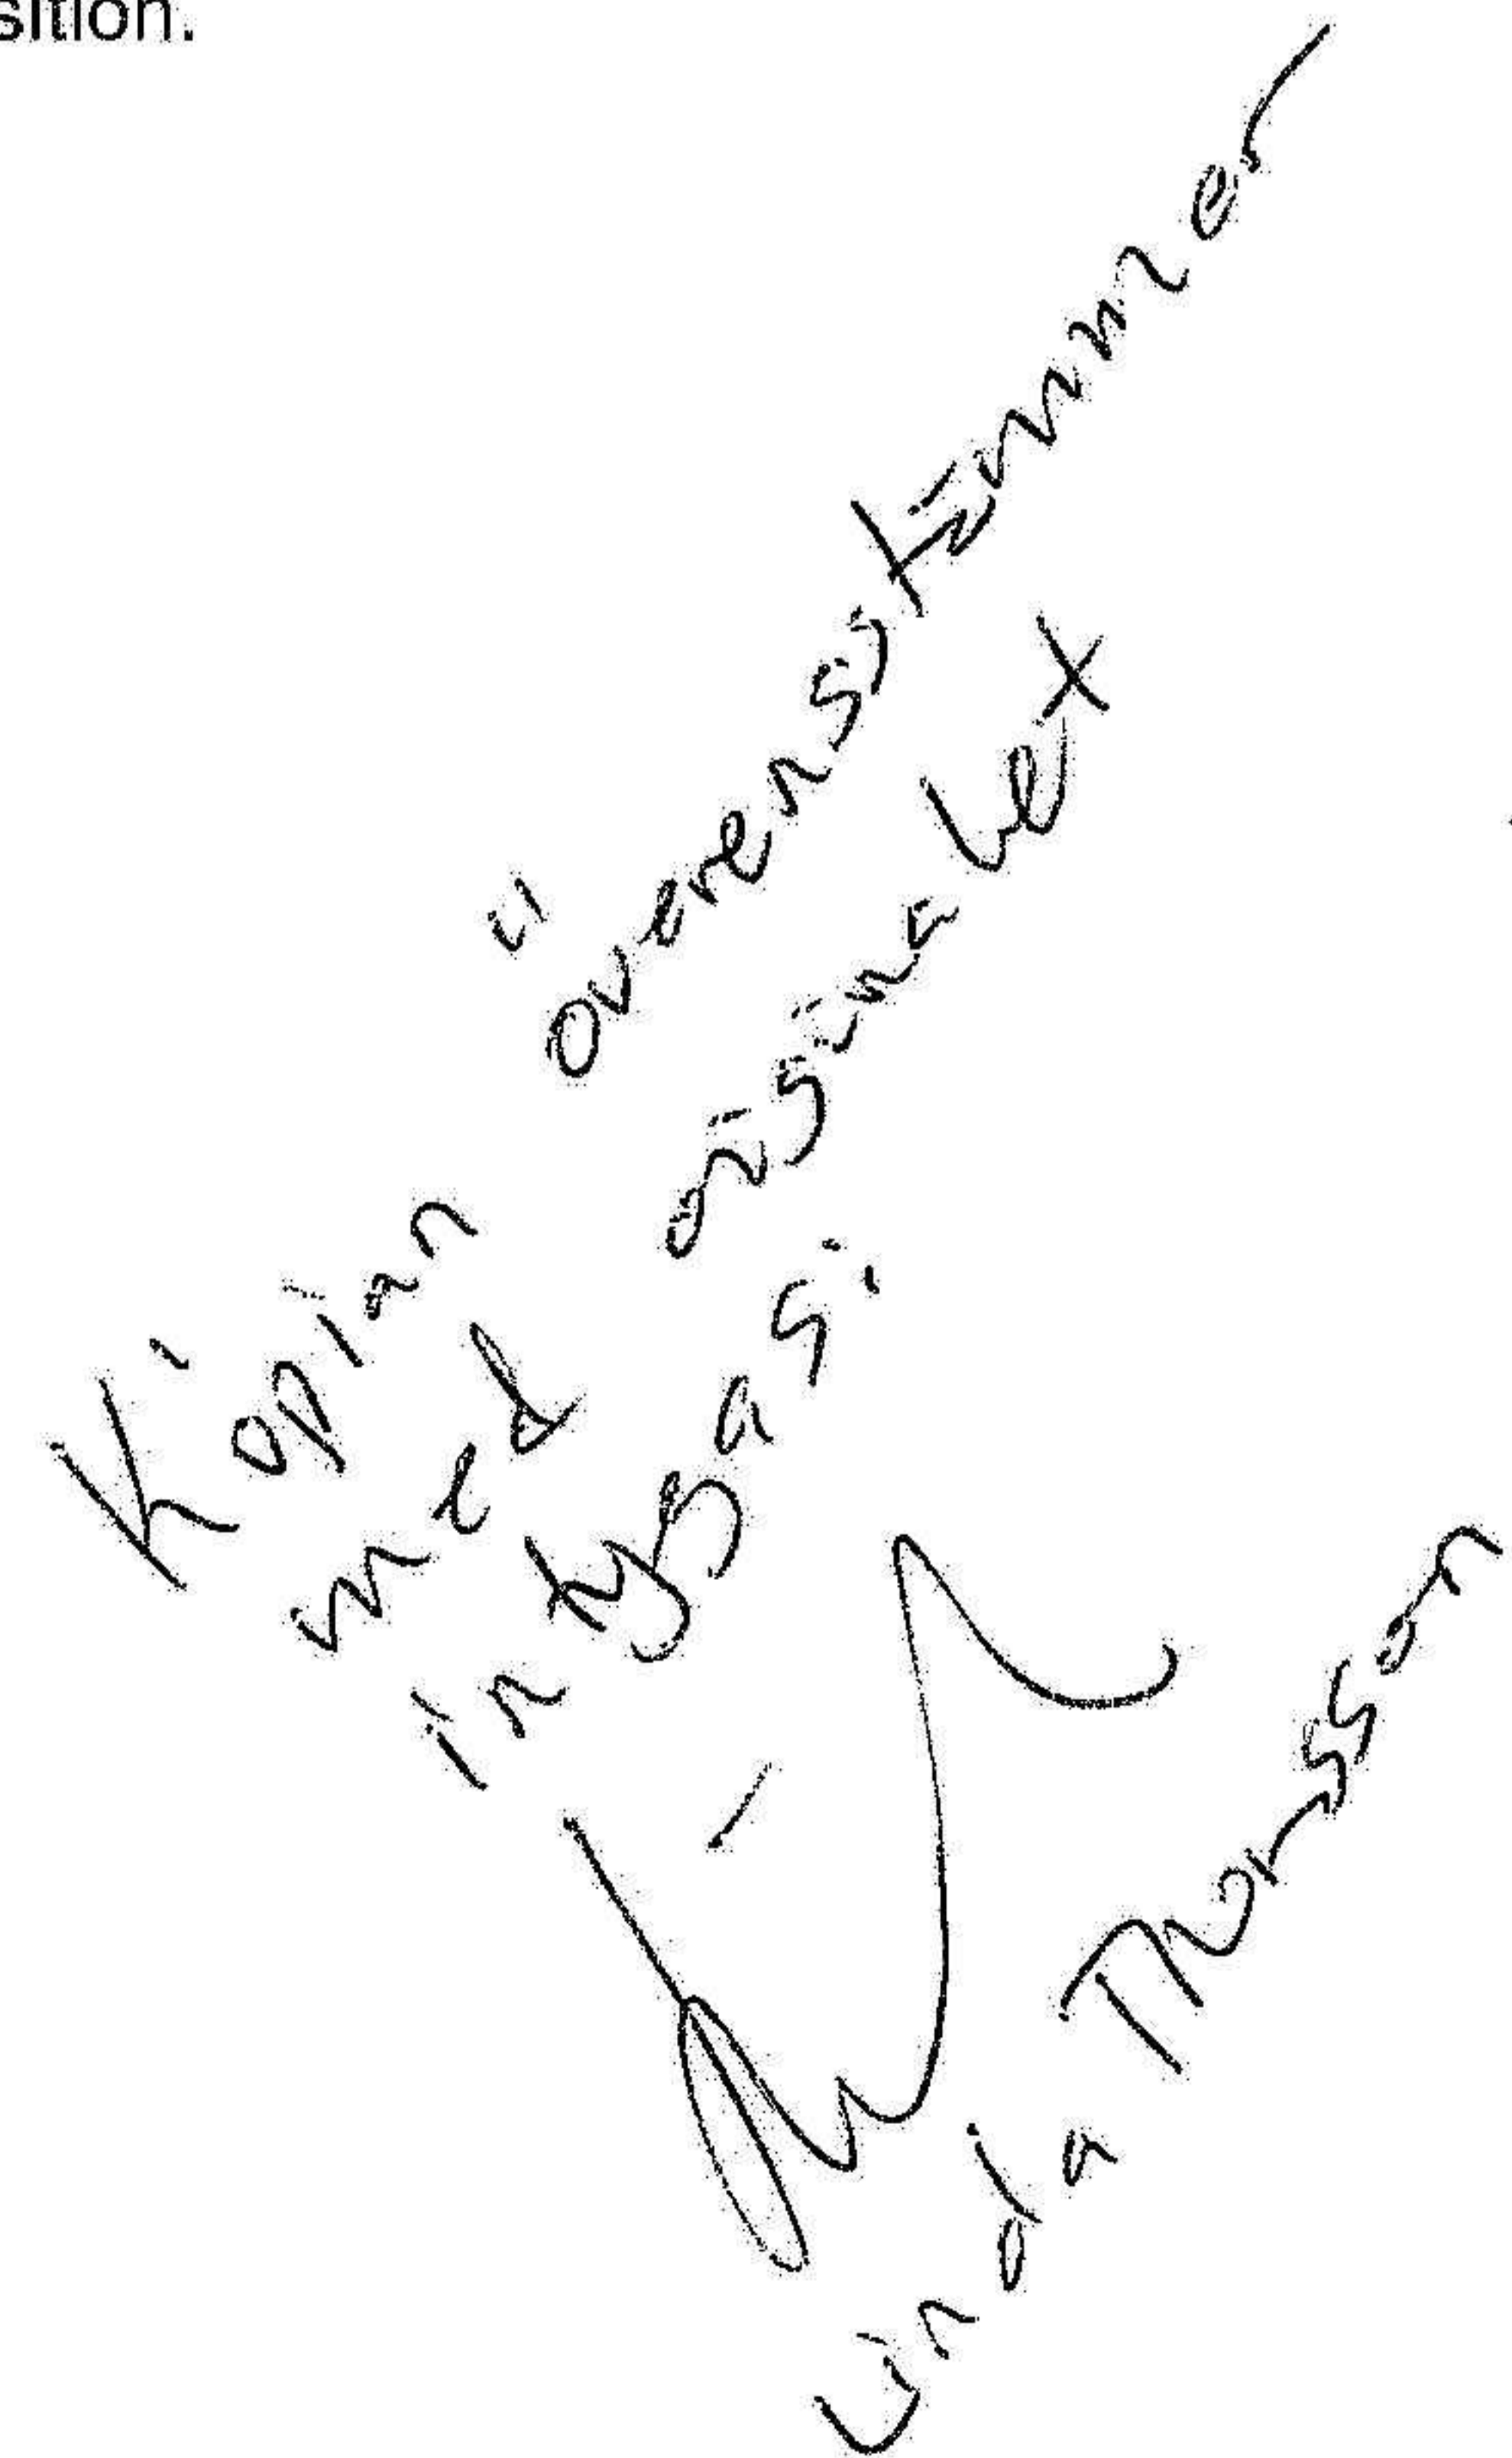 sition.
Kopian överensstämmer
med originalet
intygas:
Linda Thorsson